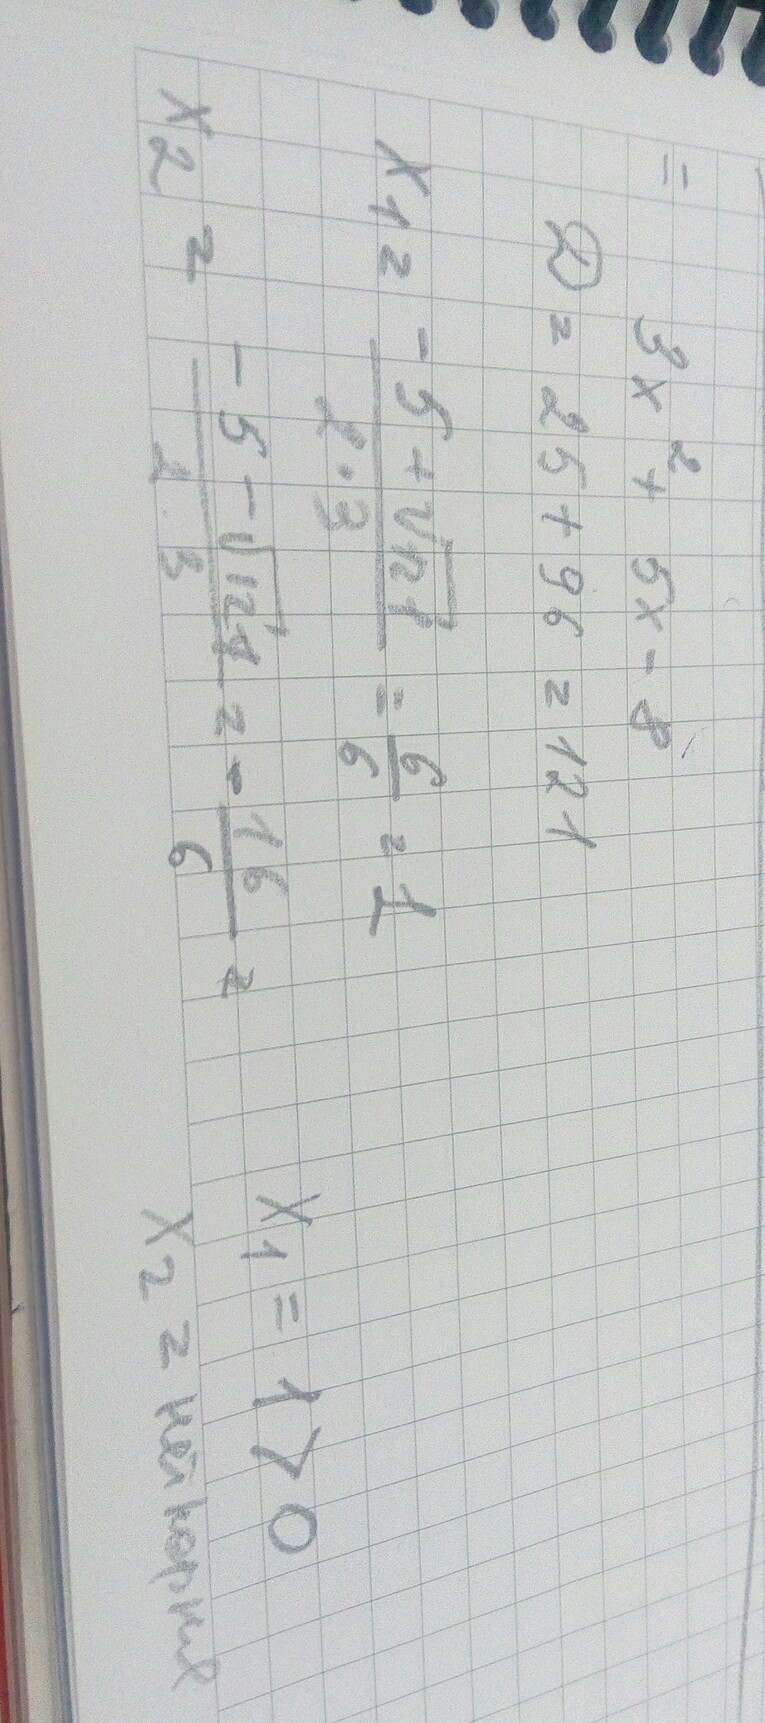 = 3x² + 5x - 8
D = 25 + 96 = 121
x1 = (-5 + √121)/(2·3) = 6/6 = 1
x2 = (-5 - √121)/(2·3) = -16/6 =
x1 = 1 > 0
x2 = нет корня